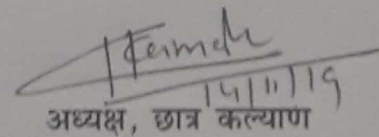 14/11/19
अध्यक्ष, छात्र कल्याण